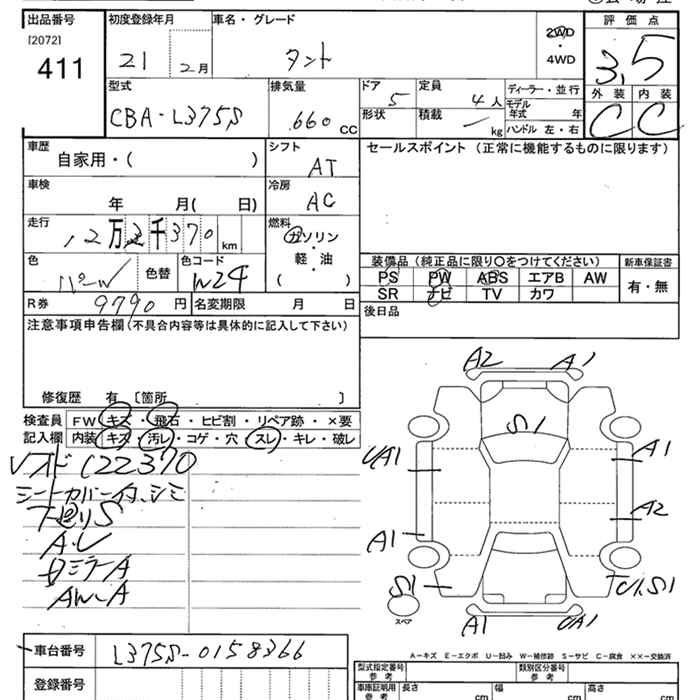 出品番号 初度登録年月 車名・グレード 評価点
[2072]
411
21 2月 タント 2WD・4WD 3.5
型式 排気量 ドア 定員 ディーラー・並行 外装 内装
CBA-L375S 660 CC 5 4人 モデル年式 年 C C
形状 積載 kg ハンドル 左・右
車歴 シフト セールスポイント (正常に機能するものに限ります)
自家用・( ) AT
車検 冷房
年 月( 日) AC
走行 燃料
12万2千370 km ガソリン・軽・油
( )
色 色替 色コード 装備品 (純正品に限り〇をつけてください) 新車保証書
パール W24 PS PW ABS エアB AW 有・無
SR ナビ TV カワ
R券 9790 円 名変期限 月 日 後日品
注意事項申告欄 (不具合内容等は具体的に記入して下さい)
修復歴 有 〔箇所 〕
検査員 FW キズ・飛石・ヒビ割・リペア跡・×要
記入欄 内装 キズ・汚レ・コゲ・穴・スレ・キレ・破レ
122370
シートカバー付、シミ
下廻りS
A・U
AW-A
A2 A1
S1
UA1 A1
A2
A1
S1
スペア
A1 UA1
A-キズ E-エクボ U-凹み W-補修跡 S-サビ C-腐食 ××-交換済
車台番号 L375S-0158366
登録番号
型式指定番号 参考 類別区分番号 参考
車庫証明用 参考 長さ cm 幅 cm 高さ cm